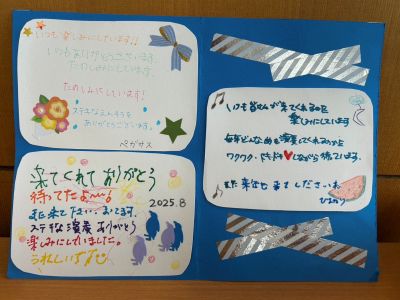 いつも楽しみにしています!!
いつもありがとうございます。
たのしみにしています。
たのしみにしています!
ステキなえんそうを
ありがとうございます。
ペガサス
来てくれてありがとう
待ってたよ〜!
また来て下さい
2025.8
ステキな演奏ありがとう
楽しみにしていました。
うれしいな
いつも皆さんが来てくれるのを
楽しみにしています
毎年どんな曲を演奏してくれるのか
ワクワク・ドキドキ♥しながら待っています。
また来年も来てくださいね
ひまわり